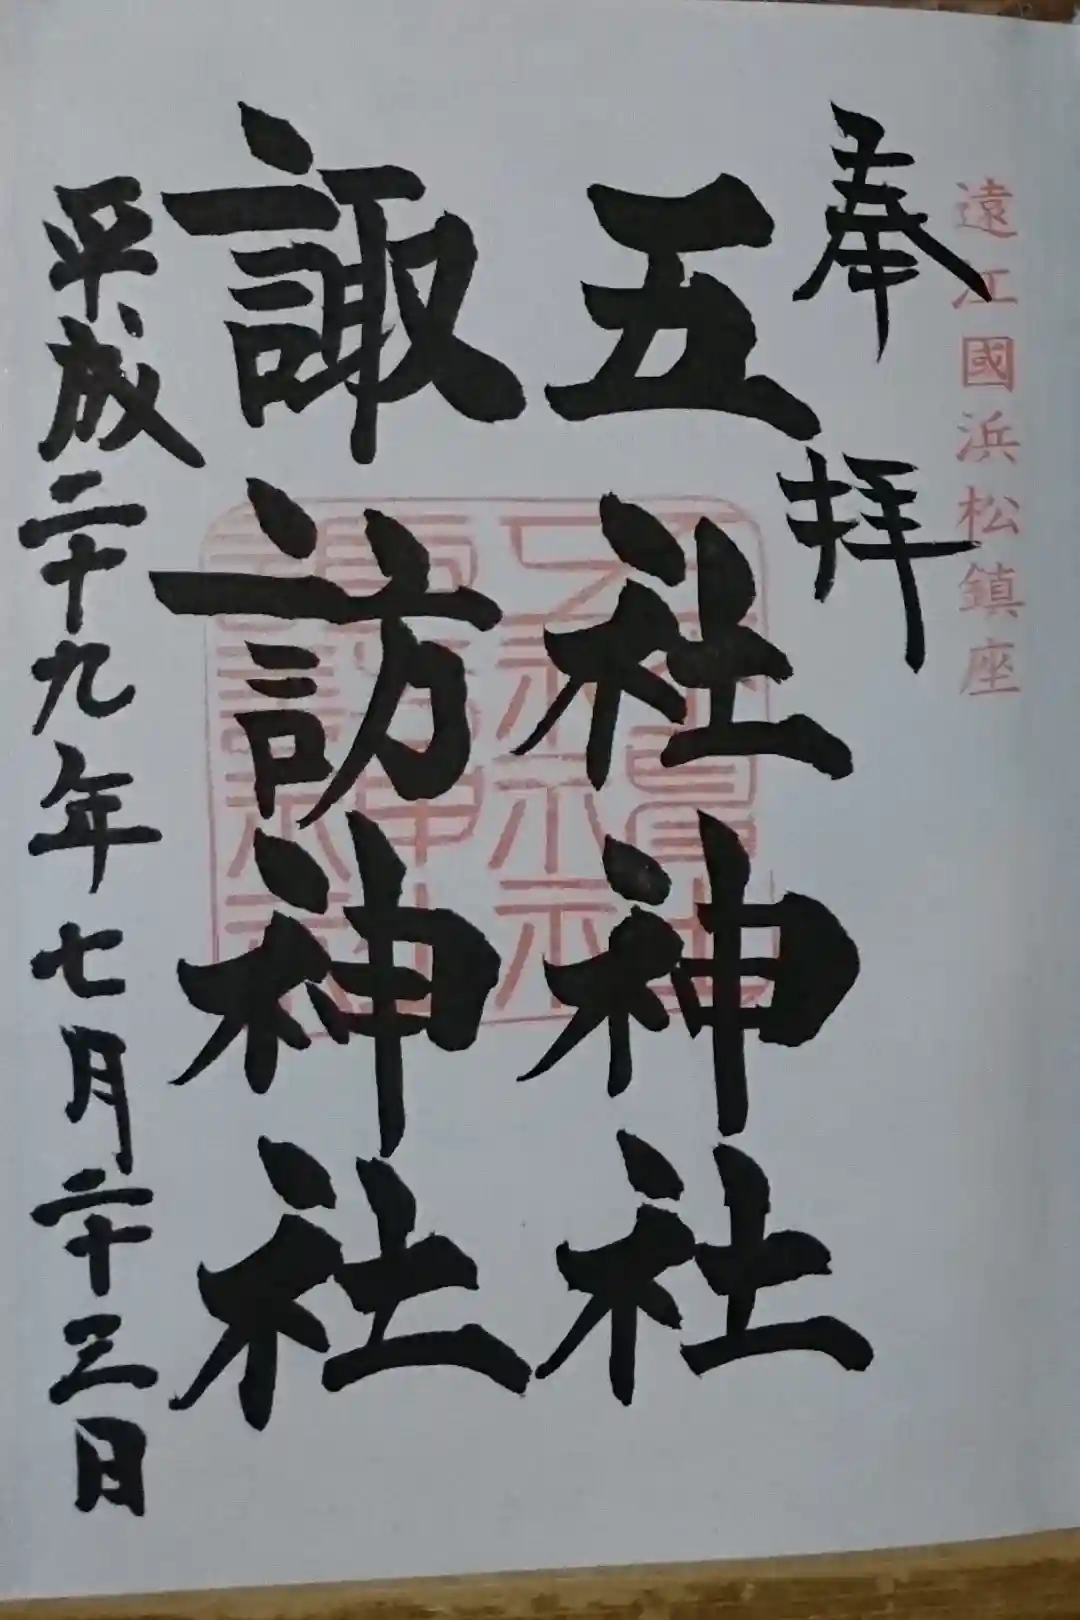 遠江國浜松鎮座
奉拝
五社神社
諏訪神社
平成二十九年七月二十三日